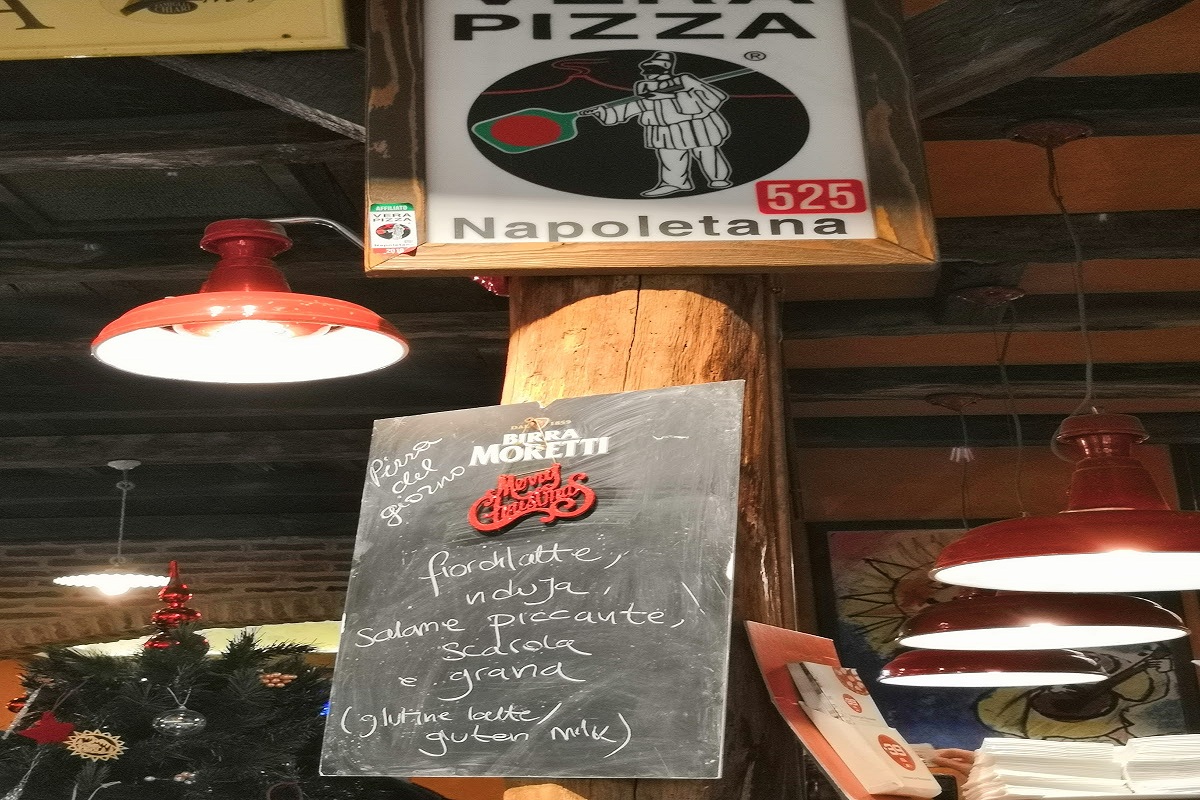 A
VERA
PIZZA
®
Napoletana
525
AFFILIATO
VERA
PIZZA
Napoletana
BIRRA
MORETTI
Merry
Christmas
Pizza
del
giorno
fiordilatte,
nduja,
salame piccante,
scarola
e grana
(glutine latte/
gluten milk)